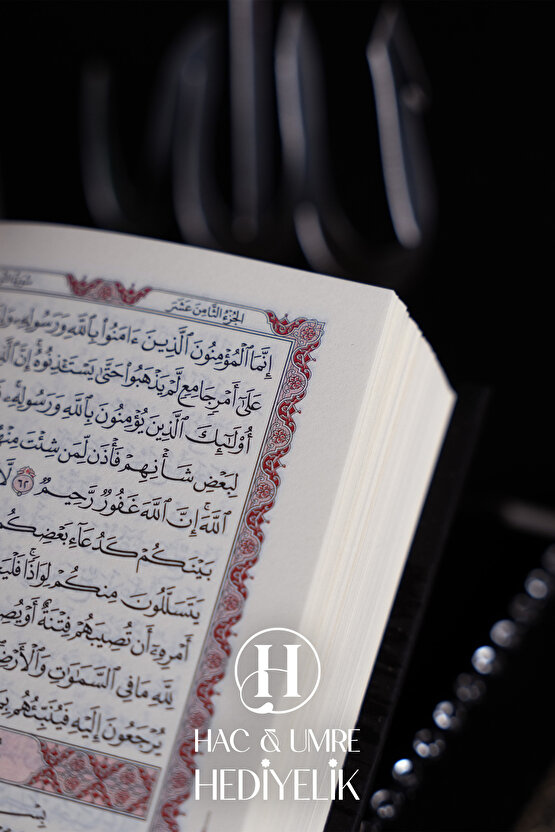 الجُزْءُ الثَّامِنَ عَشَرَ
إِنَّمَا ٱلْمُؤْمِنُونَ ٱلَّذِينَ ءَامَنُوا۟ بِٱللَّهِ وَرَسُولِهِۦ
عَلَىٰٓ أَمْرٍ جَامِعٍ لَّمْ يَذْهَبُوا۟ حَتَّىٰ يَسْتَـْٔذِنُوهُ إِنَّ
أُو۟لَٰٓئِكَ ٱلَّذِينَ يُؤْمِنُونَ بِٱللَّهِ وَرَسُولِهِۦ
لِبَعْضِ شَأْنِهِمْ فَأْذَن لِّمَن شِئْتَ
ٱللَّهَ إِنَّ ٱللَّهَ غَفُورٌ رَّحِيمٌ ٦٢
بَيْنَكُمْ كَدُعَآءِ بَعْضِكُم
يَتَسَلَّلُونَ مِنكُمْ لِوَاذًا
أَمْرِهِۦٓ أَن تُصِيبَهُمْ فِتْنَةٌ أَوْ
لِلَّهِ مَا فِى ٱلسَّمَٰوَٰتِ
يُرْجَعُونَ إِلَيْهِ فَيُنَبِّئُهُم
H
HAC & UMRE
HEDİYELİK